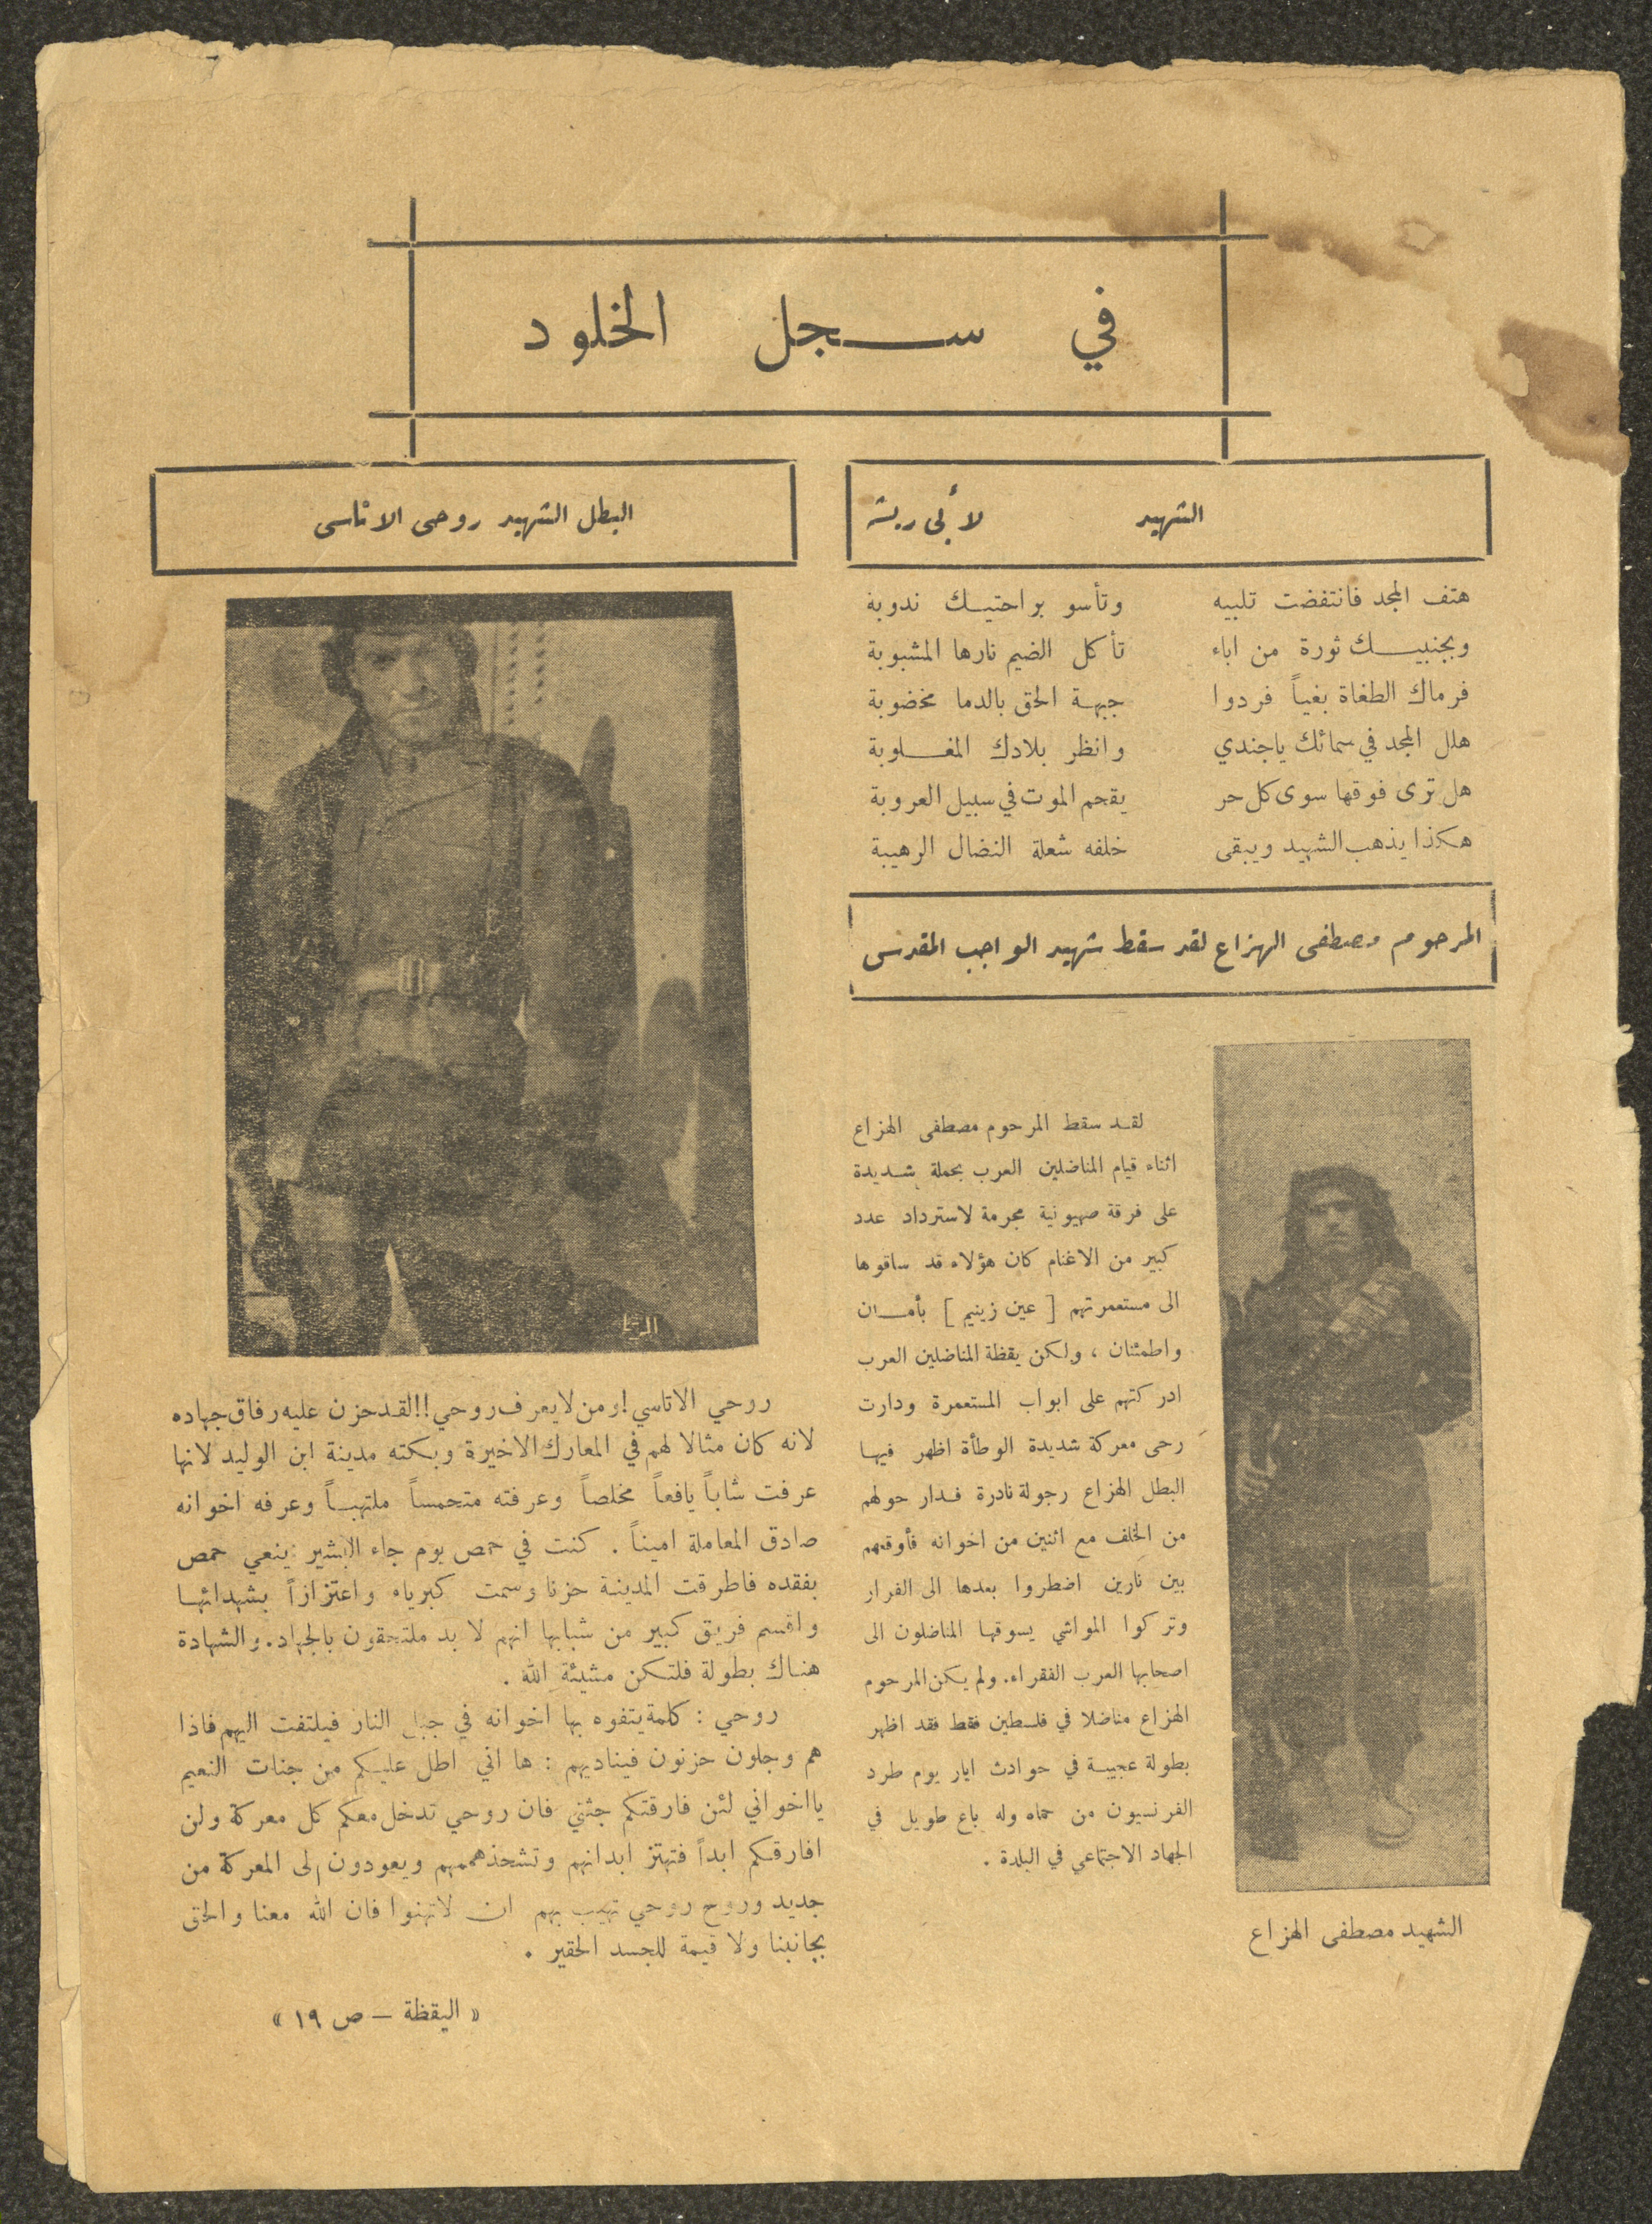 في سجل الخلود
الشهيد لأبي ريشة
هتف المجد فانتفضت تلبيه وتأسو براحتيك ندوبة
وبجنبيك ثورة من اباء تأكل الضيم نارها المشبوبة
فرماك الطغاة بغياً فردوا جبهة الحق بالدما مخضوبة
هلل المجد في سمائك ياجندي وانظر بلادك المغلوبة
هل ترى فوقها سوى كل حر يقحم الموت في سبيل العروبة
هكذا يذهب الشهيد ويبقى خلفه شعلة النضال الرهيبة
المرحوم مصطفى الهزاع لقد سقط شهيد الواجب المقدس
لقد سقط المرحوم مصطفى الهزاع
اثناء قيام المناضلين العرب بحملة شديدة
على فرقة صهيونية مجرمة لاسترداد عدد
كبير من الاغنام كان هؤلاء قد ساقوها
الى مستعمرتهم [ عين زينيم ] بأمان
واطمئنان ، ولكن يقظة المناضلين العرب
ادركتهم على ابواب المستعمرة ودارت
رحى معركة شديدة الوطأة اظهر فيها
البطل الهزاع رجولة نادرة فدار حولهم
من الخلف مع اثنين من اخوانه فأوقعهم
بين نارين اضطروا بعدها الى الفرار
وتركوا المواشي يسوقها المناضلون الى
اصحابها العرب الفقراء. ولم يكن المرحوم
الهزاع مناضلا في فلسطين فقط فقد اظهر
بطولة عجيبة في حوادث ايار يوم طرد
الفرنسيون من حماه وله باع طويل في
الجهاد الاجتماعي في البلدة .
الشهيد مصطفى الهزاع
البطل الشهيد روحي الاتاسي
روحي الاتاسي! ومن لايعرف روحي!! لقد حزن عليه رفاق جهاده
لانه كان مثالا لهم في المعارك الاخيرة وبكته مدينة ابن الوليد لانها
عرفت شاباً يافعاً مخلصاً وعرفته متحمساً ملتهباً وعرفه اخوانه
صادق المعاملة اميناً . كنت في حمص يوم جاء البشير ينعي حمص
بفقده فاطرقت المدينة حزنا وسمت كبرياء واعتزازاً بشهدائها
واقسم فريق كبير من شبابها انهم لا بد ملتحقون بالجهاد. والشهادة
هناك بطولة فلتكن مشيئة الله .
روحي : كلمة يتفوه بها اخوانه في جبل النار فيلتفت اليهم فاذا
هم وجلون حزنون فيناديهم : ها اني اطل عليكم من جنات النعيم
يااخواني لئن فارقتكم جثتي فان روحي تدخل معكم كل معركة ولن
افارقكم ابداً فتهتز ابدانهم وتشحذ هممهم ويعودون الى المعركة من
جديد وروح روحي تهيب بهم ان لاتهنوا فان الله معنا والحق
بجانبنا ولا قيمة للجسد الحقير .
« اليقظة – ص ١٩ »